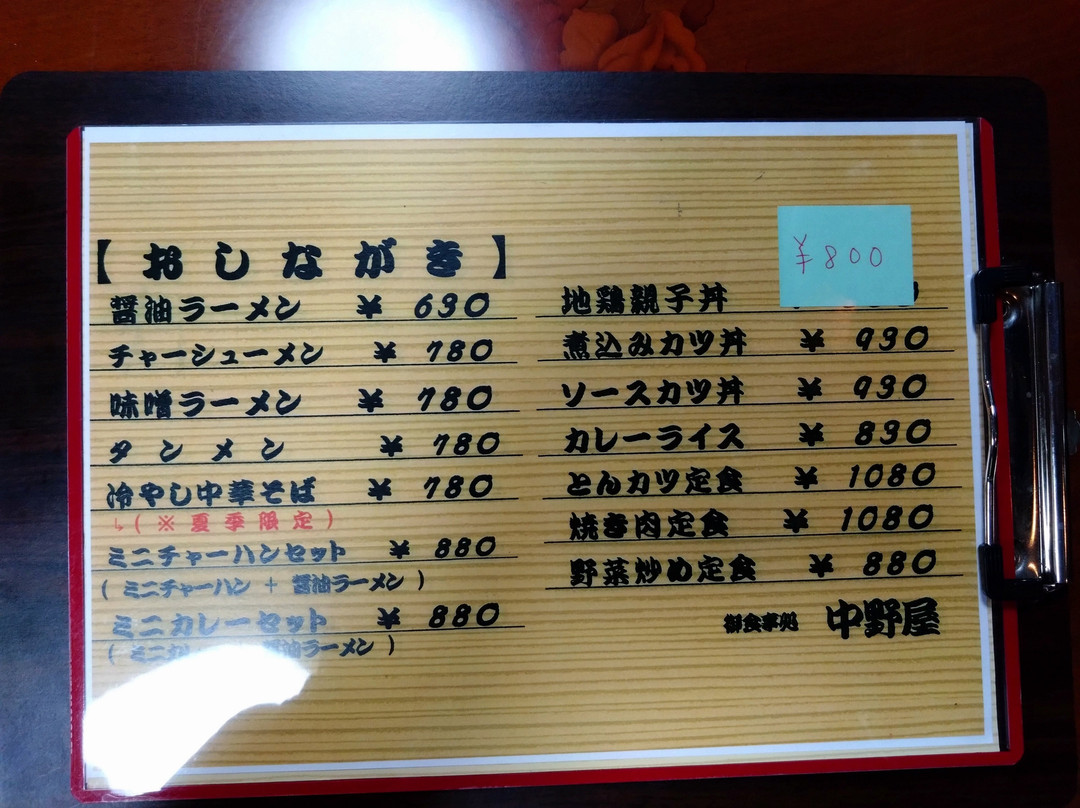 【 おしながき 】
醤油ラーメン ¥ 630
チャーシューメン ¥ 780
味噌ラーメン ¥ 780
タンメン ¥ 780
冷やし中華そば ¥ 780
↳(※夏季限定)
ミニチャーハンセット ¥ 880
(ミニチャーハン + 醤油ラーメン)
ミニカレーセット ¥ 880
(ミニカ 油ラーメン)
地鶏親子丼 ¥800
煮込みカツ丼 ¥ 930
ソースカツ丼 ¥ 930
カレーライス ¥ 830
とんカツ定食 ¥ 1080
焼き肉定食 ¥ 1080
野菜炒め定食 ¥ 880
御食事処 中野屋